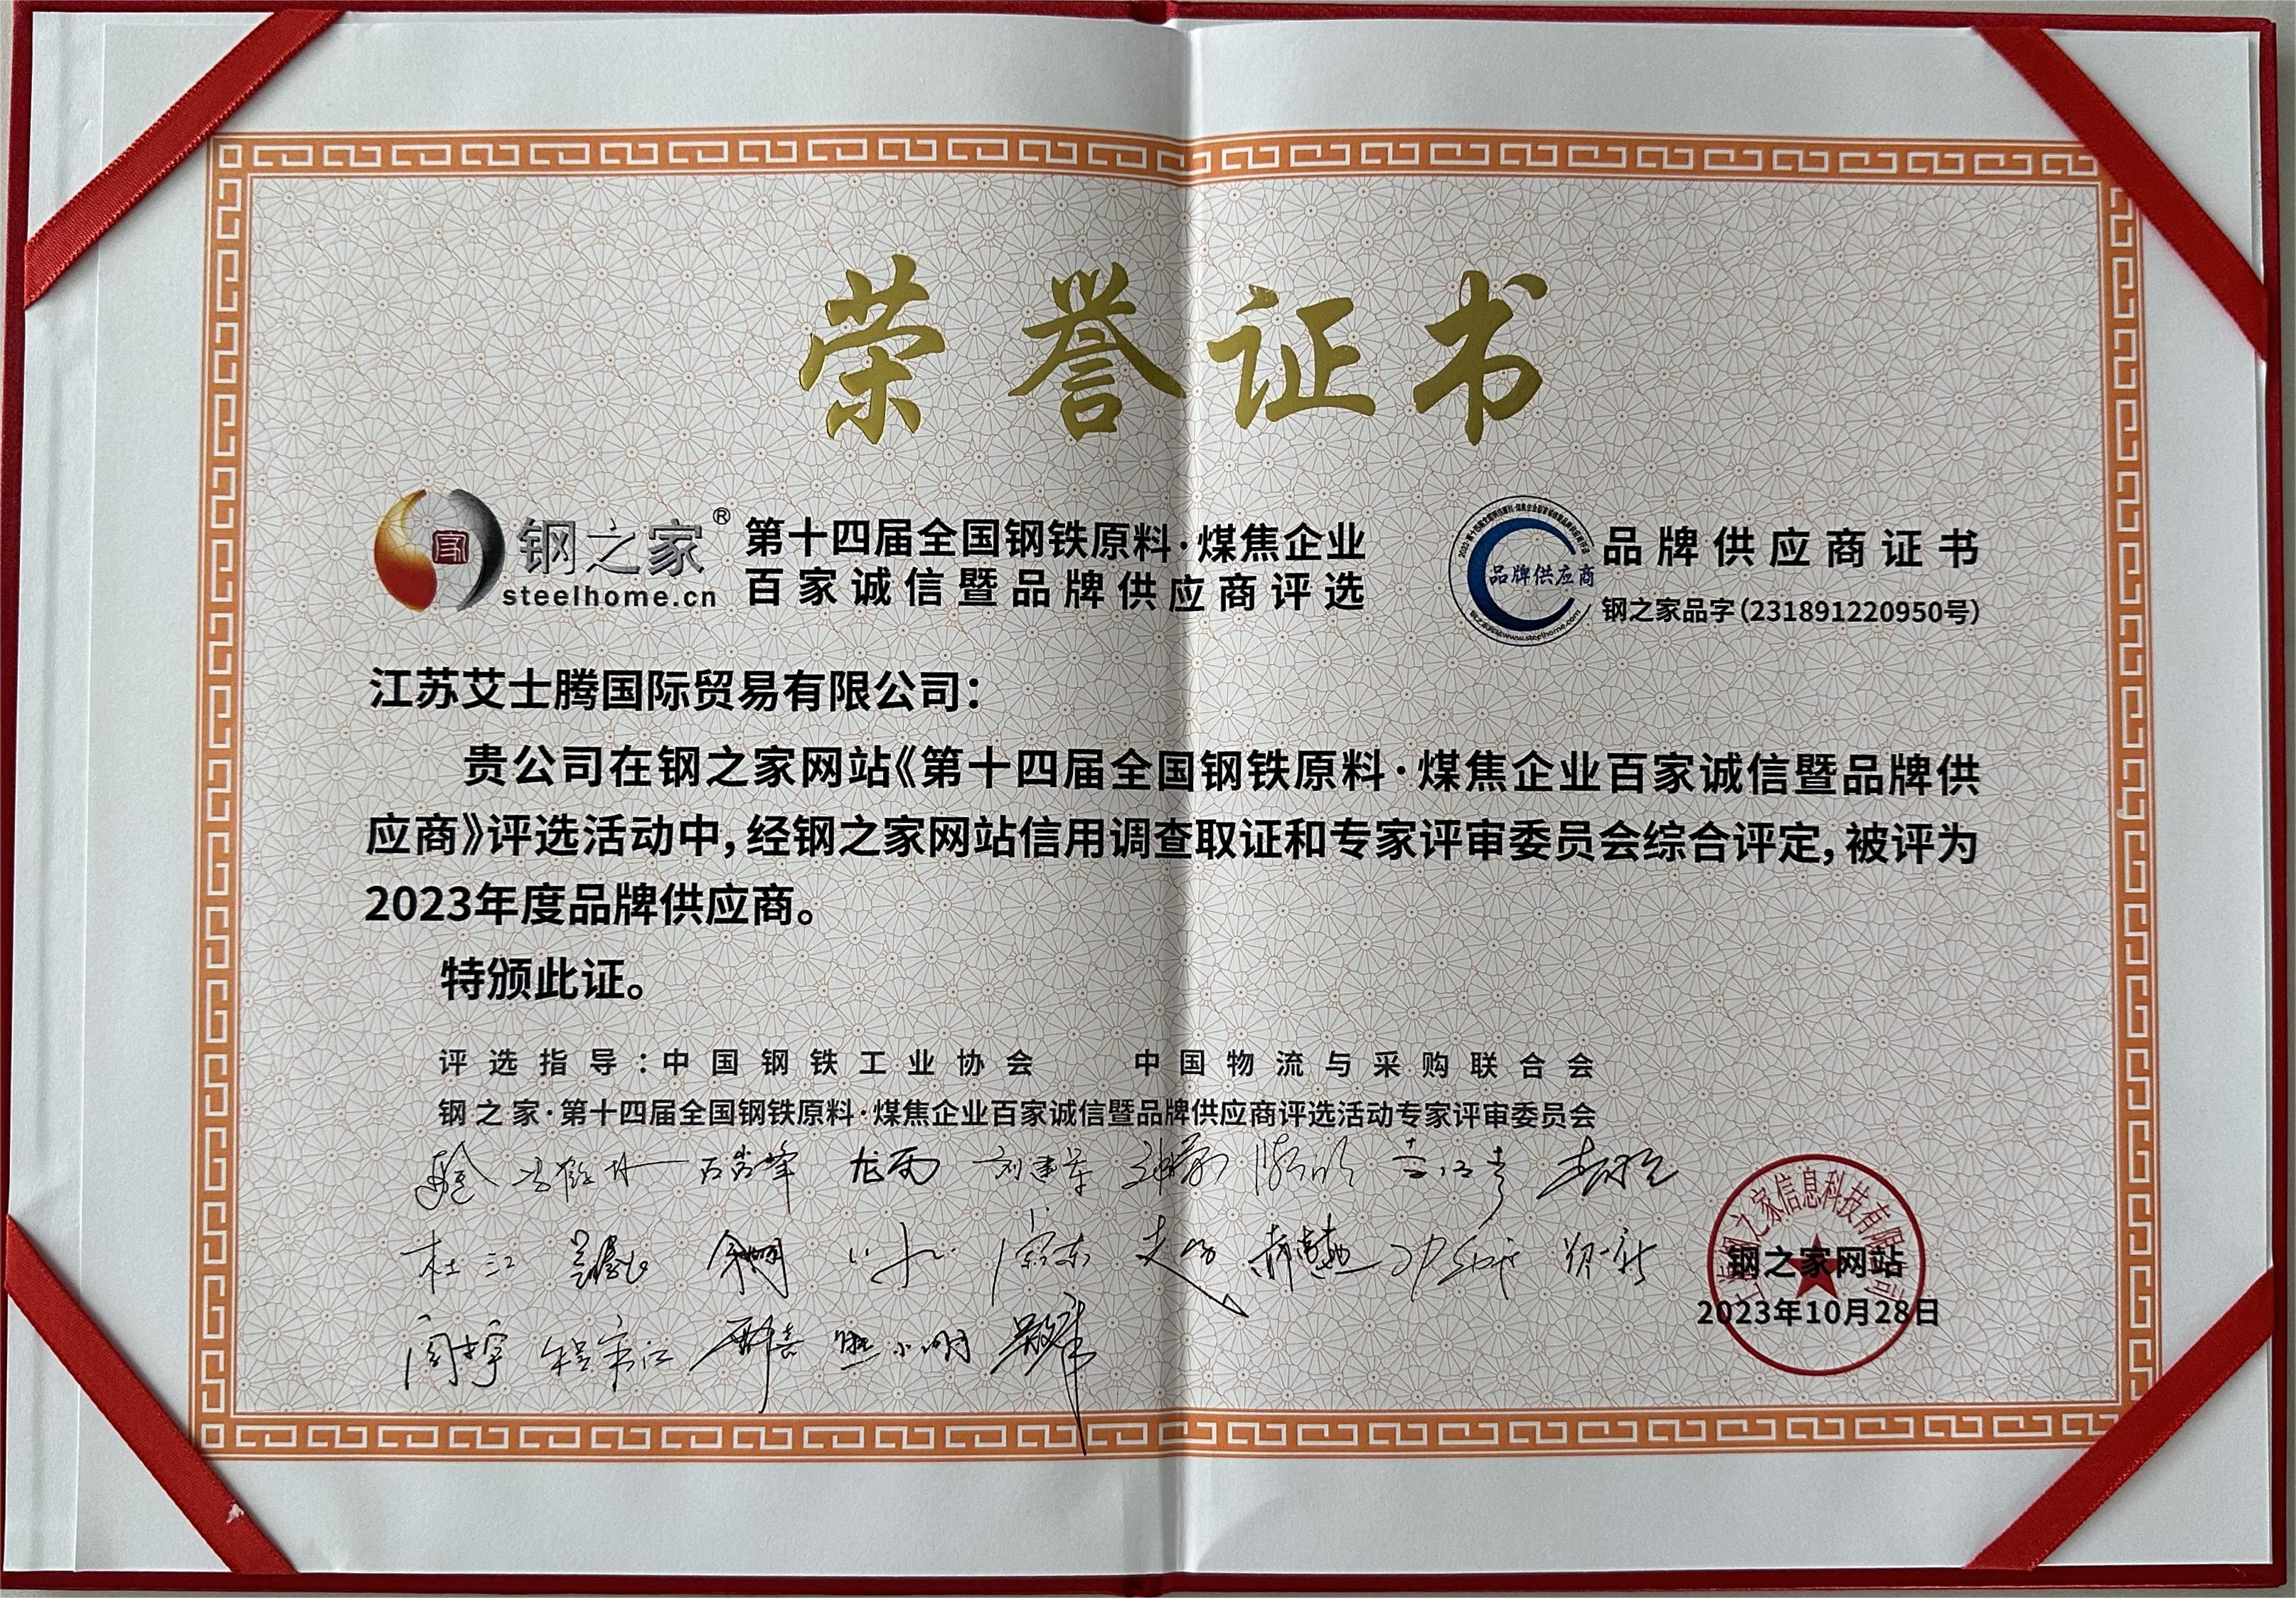 荣誉证书
钢之家®
steelhome.cn
第十四届全国钢铁原料·煤焦企业
百家诚信暨品牌供应商评选
品牌供应商
品牌供应商证书
钢之家品字(231891220950号)
江苏艾士腾国际贸易有限公司:
贵公司在钢之家网站《第十四届全国钢铁原料·煤焦企业百家诚信暨品牌供
应商》评选活动中,经钢之家网站信用调查取证和专家评审委员会综合评定,被评为
2023年度品牌供应商。
特颁此证。
评选指导:中国钢铁工业协会 中国物流与采购联合会
钢之家·第十四届全国钢铁原料·煤焦企业百家诚信暨品牌供应商评选活动专家评审委员会
石岩峰 龙雨 刘建军
杜江
熊小明
上海钢之家信息科技有限公司
钢之家网站
2023年10月28日